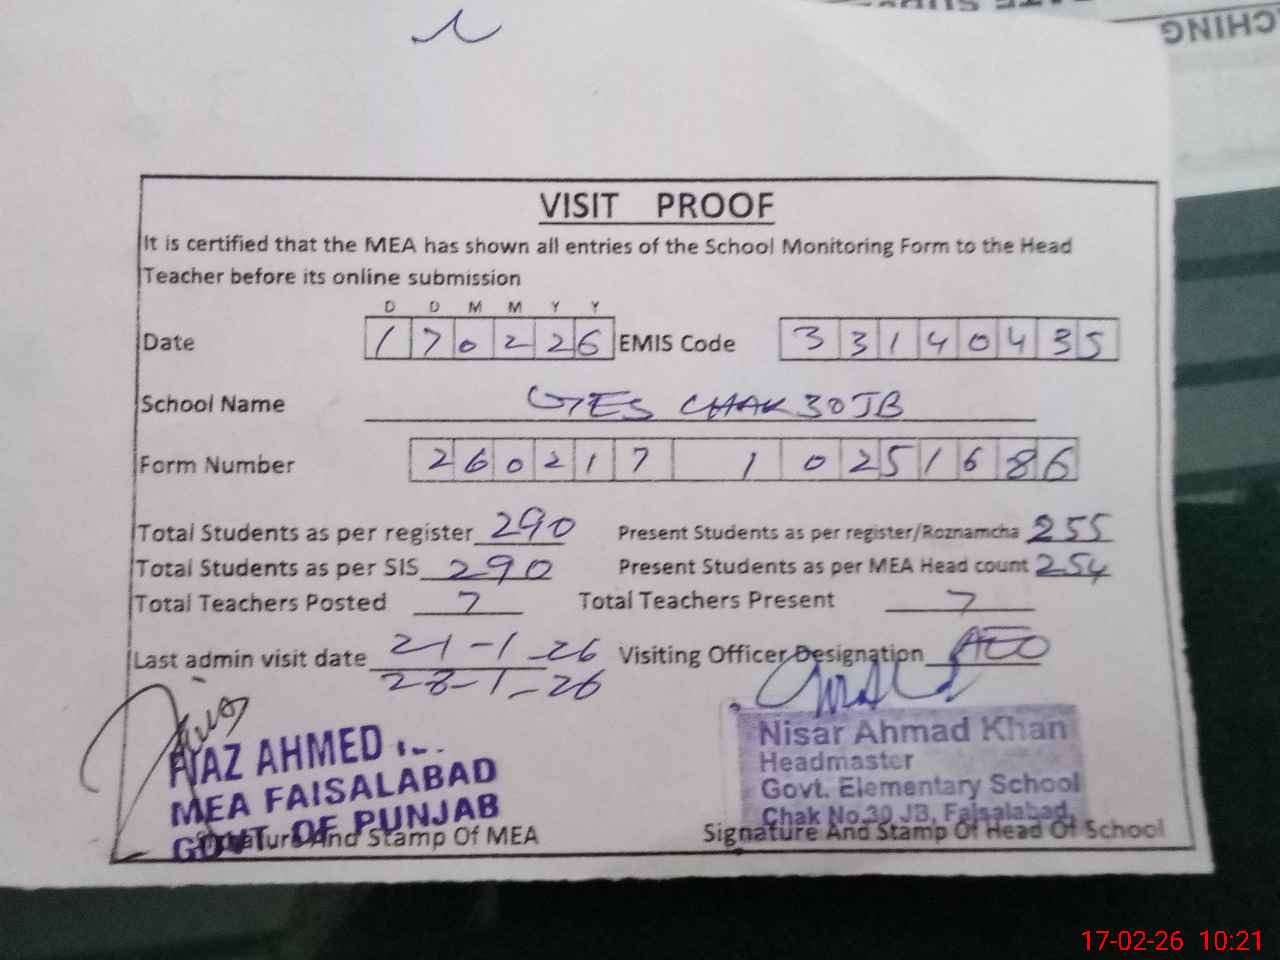 CHING
VISIT PROOF
It is certified that the MEA has shown all entries of the School Monitoring Form to the Head
Teacher before its online submission
D D M M Y Y
Date 170226 EMIS Code 33140435
School Name GES CHAK 30 JB
Form Number 260217 10251686
Total Students as per register 290 Present Students as per register/Roznamcha 255
Total Students as per SIS 290 Present Students as per MEA Head count 254
Total Teachers Posted 7 Total Teachers Present 7
Last admin visit date 21-1-26 Visiting Officer Designation AEO
28-1-26
AHMED
MEA FAISALABAD
GOVT OF PUNJAB
Signature And Stamp Of MEA
Nisar Ahmad Khan
Headmaster
Govt. Elementary School
Chak No.30 JB, Faisalabad
Signature And Stamp Of Head Of School
17-02-26 10:21